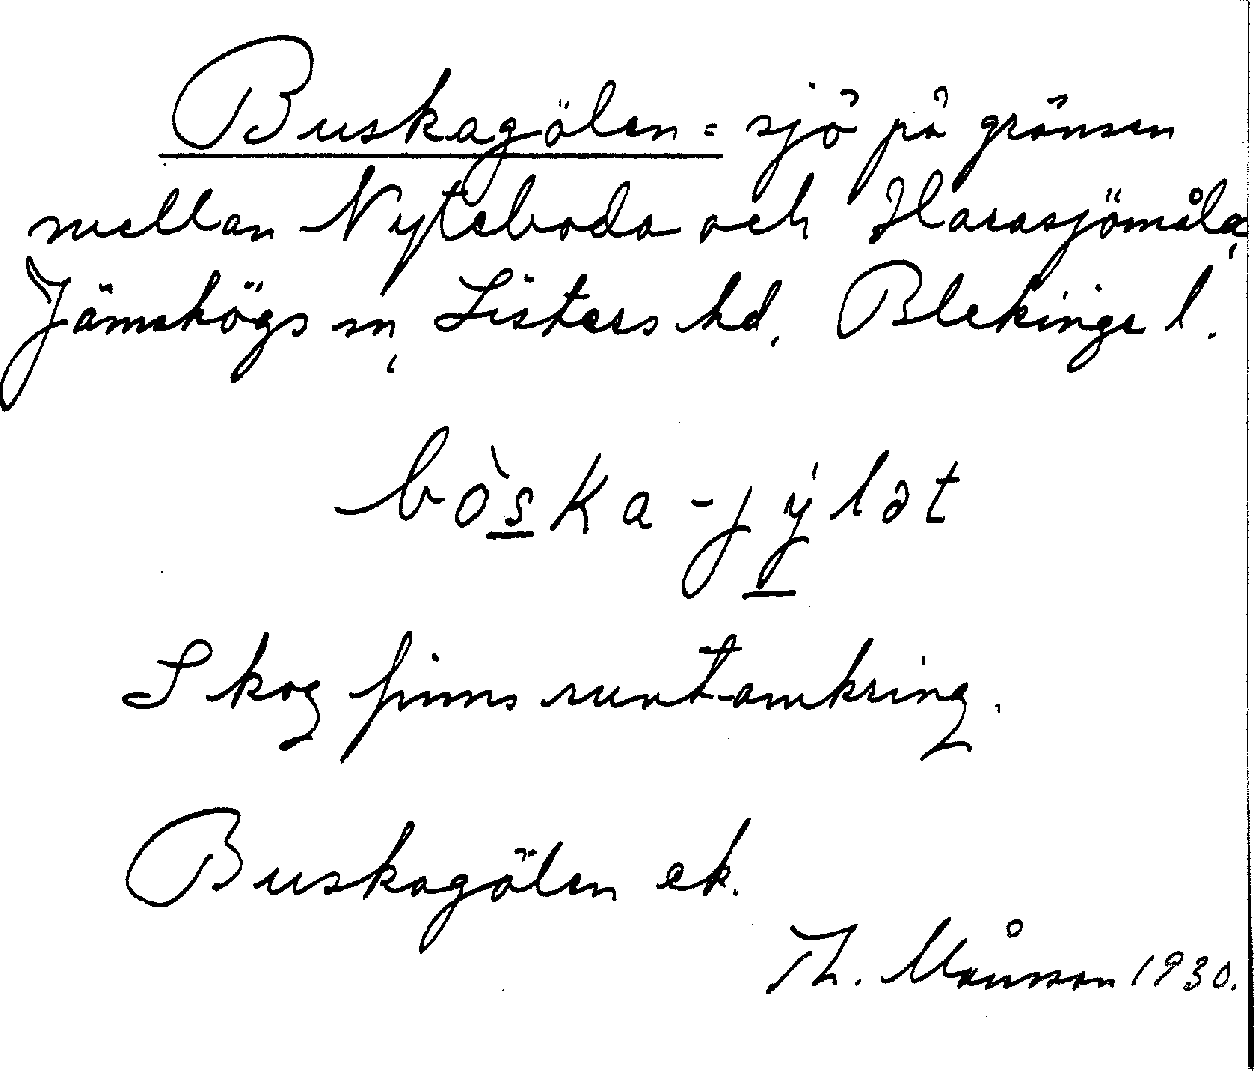 Buskagölen = sjö på gränsen
mellan Nyteboda och Harasjömåla,
Jämshögs sn, Listers hd. Blekinge l.
bòska-jýlət
Skog finns runtomkring.
Buskagölen ek.
Th. Månsson 1930.